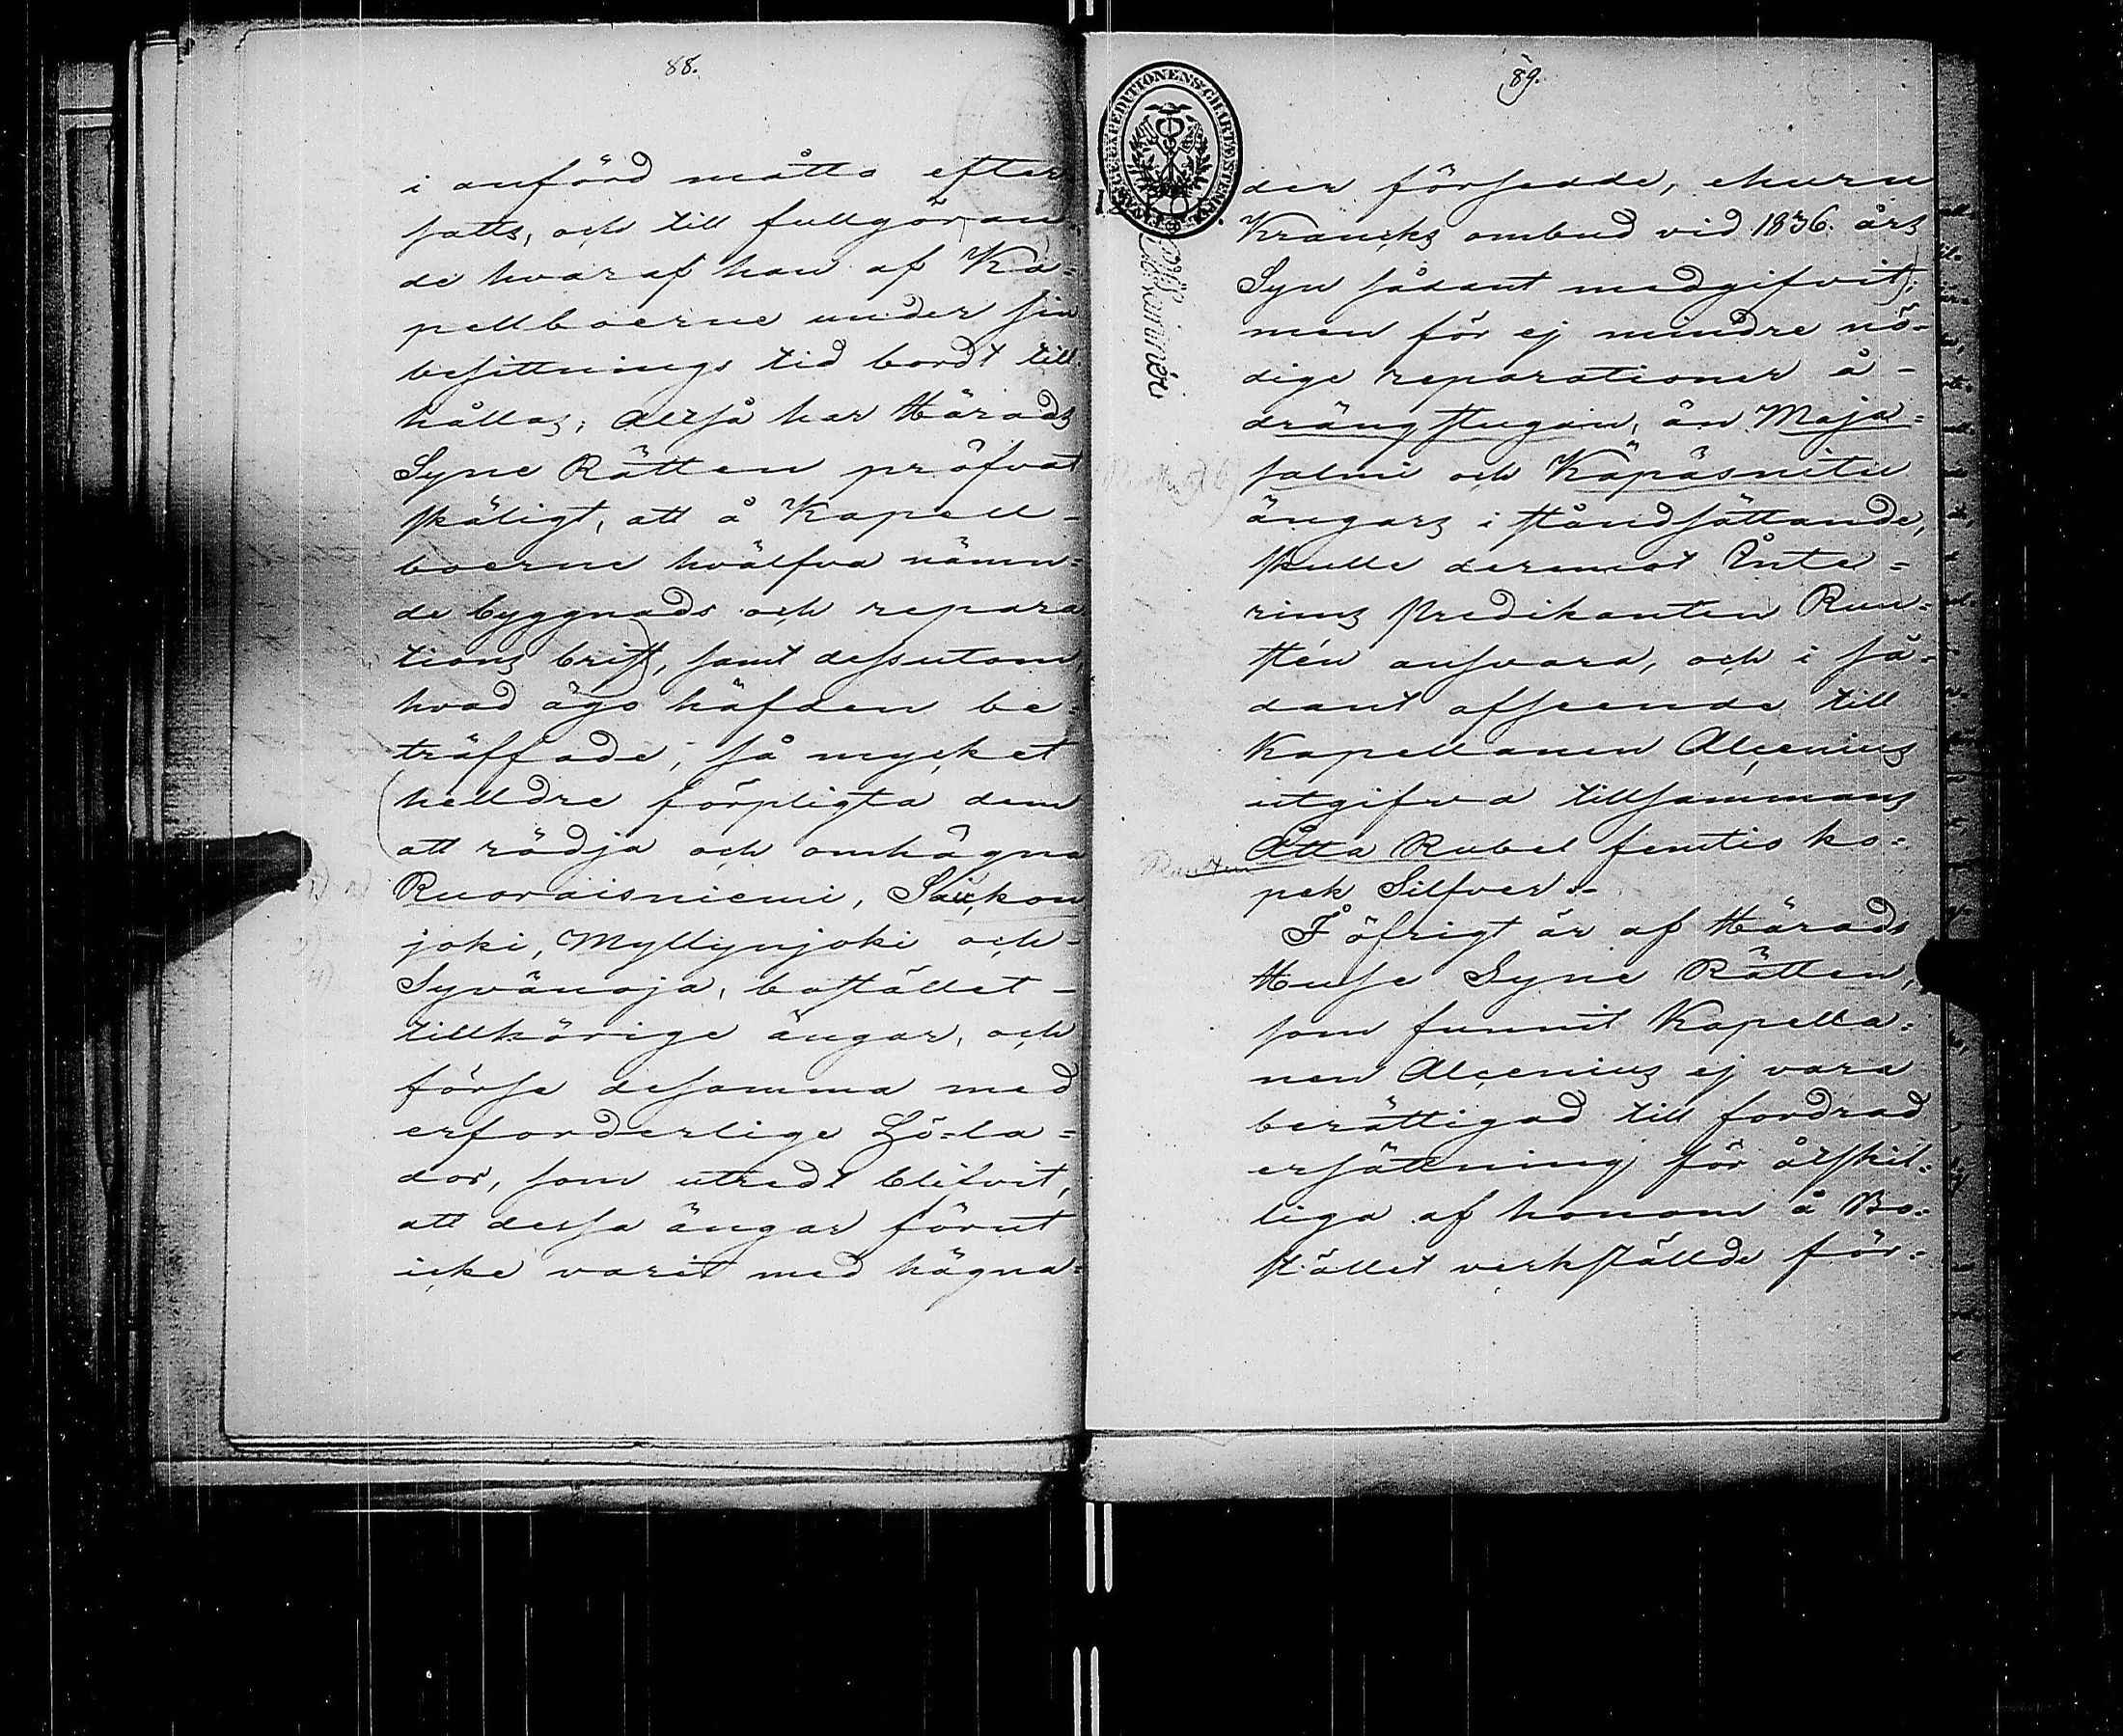 88.
i anförd måtto efter
satts, och till fullgöran
de hvaraf han af Ka=
pellboerne under sin
besittnings tid bordt till
hållas; Altså har Härads
Syne Rätten pröfvat
skäligt, att å Kapell-
boerne hvälfva nämn=
de byggnads och repara
tions brist, samt dessutom,
hvad ägo häfden be=
träffade, så mycket
helldre förpligta dem
att rödja och omhägna
Ruoraisniemi, Saickon
joki, Myllynjoki och
Syvänoja, bostället-
tillhörige ängar, och
förse desamma med
erforderlige Hö-la=
dor, som utredt blifvit,
att dessa ängar förut
icke varit med hägna=
89.
der försedde, ehuru
Krancks ombud vid 1836. års
Syn sådant medgifvit;
men för ej mindre nö-
dige reparationer å-
drängstugan, än Maja=
salmi och Käpäsnitu
ängars i ståndsättande,
skulle deremot Inte=
rims Predikanten Run=
stén ansvara, och i så=
dant afseende till
Kapellanen Alcenius
utgifva tillsammans
Åtta Rubel femtio ko=
pek Silfver.-
I öfrigt är af Härads
Huse Syne Rätten,
som funnit Kapella=
nen Alcenius ej vara
berättigad till fordrad
ersättning för åtskil=
liga af honom å Bo=
stället verkställde för=